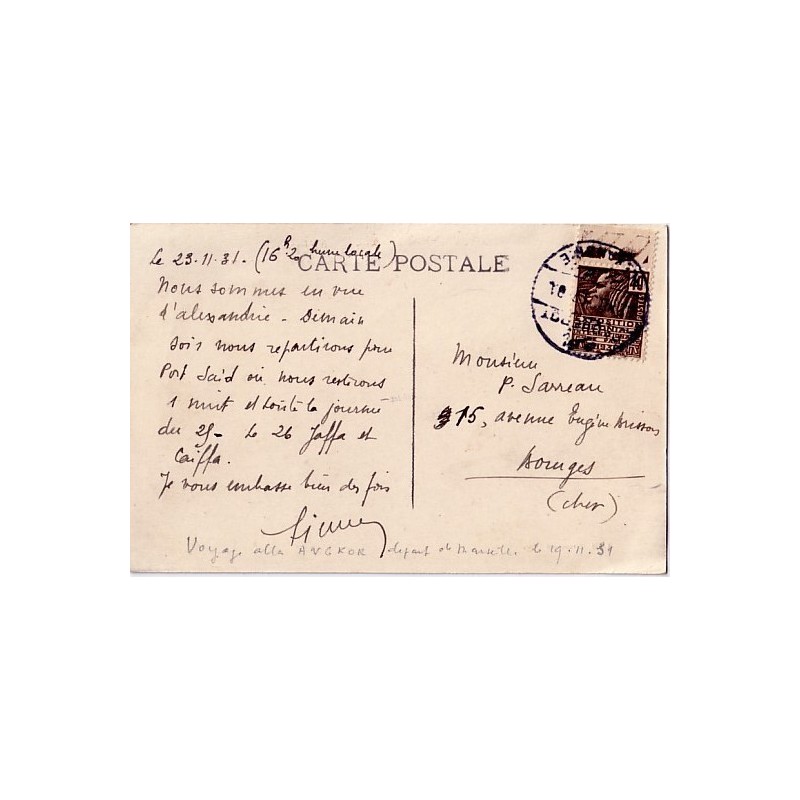 Le 23.11.31. (16h20 heure locale)
CARTE POSTALE
Nous sommes en vue
d'alexandrie - Demain
soir nous repartirons pour
Port Saïd où nous resterons
1 nuit et toute la journée
du 25- Le 26 Jaffa et
Caiffa.
Je vous embrasse bien des fois
Monsieur
P. Sarreau
15, avenue Eugène Brisson
Bourges
(Cher)
Voyage alla ANGKOR départ de Marseille le 19.11.31
40
POSTES